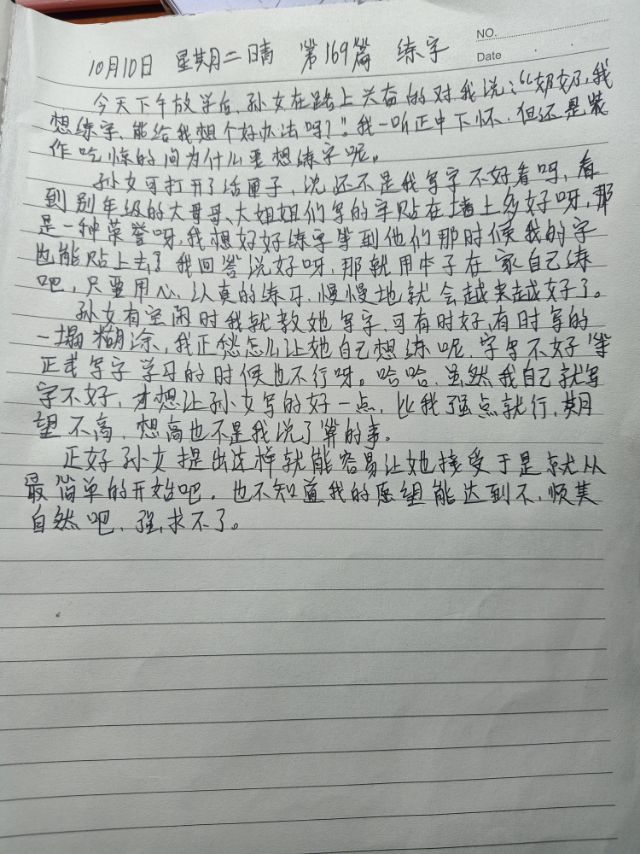 NO.
Date
10月10日 星期二晴 第169篇 练字
今天下午放学后,孙女在路上兴奋的对我说:“奶奶,我
想练字,能给我想个好办法吗?”我一听正中下怀,但还是装
作吃惊的问为什么要想练字呢。
孙女可打开了话匣子,说还不是我写字不好看吗,看
到别年级的大哥哥、大姐姐们写的字贴在墙上多好呀,那
是一种荣誉呀,我想好好练字等到他们那时候我的字
也能贴上去了我回答说好呀,那就用本子在家自己练
吧,只要用心,认真的练习,慢慢地就会越来越好了。
孙女有空闲时我就教她写字,可有时好,有时写的
一塌糊涂,我正愁怎么让她自己想练呢,字写不好等
正式写字学习的时候也不行呀。哈哈,虽然我自己就写
字不好,才想让孙女写的好一点,比我强点就行,期
望不高,想高也不是我说了算的事。
正好孙女提出这样就能容易让她接受于是就从
最简单的开始吧,也不知道我的愿望能达到不,顺其
自然吧,强求不了。